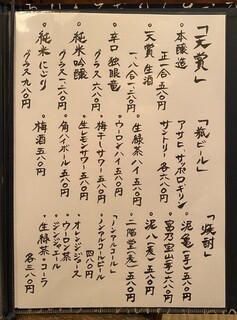 「天賞」
◦本醸造
正一合 五八〇円
◦天賞 生酒
一.八合 一三六〇円
◦辛口 独眼竜
グラス 六八〇円
◦純米吟醸
グラス 一二八〇円
◦純米にごり
グラス 九八〇円
「瓶ビール」
アサヒ、サッポロ、キリン
サントリー 各六八〇円
◦生緑茶ハイ 五八〇円
◦ウーロンハイ 五八〇円
◦梅干サワー 五八〇円
◦生レモンサワー 五八〇円
◦角ハイボール 五八〇円
◦梅酒 五八〇円
「焼酎」
◦泥亀(芋) 五八〇円
◦富乃宝山(芋) 六八〇円
◦泥(麦) 五八〇円
◦二階堂(麦) 五八〇円
「ノンアルコール」
◦ノンアルコールビール
四八〇円
◦オレンジジュース
◦ウーロン茶
◦ジンジャエール
◦生緑茶・コーラ
各三八〇円